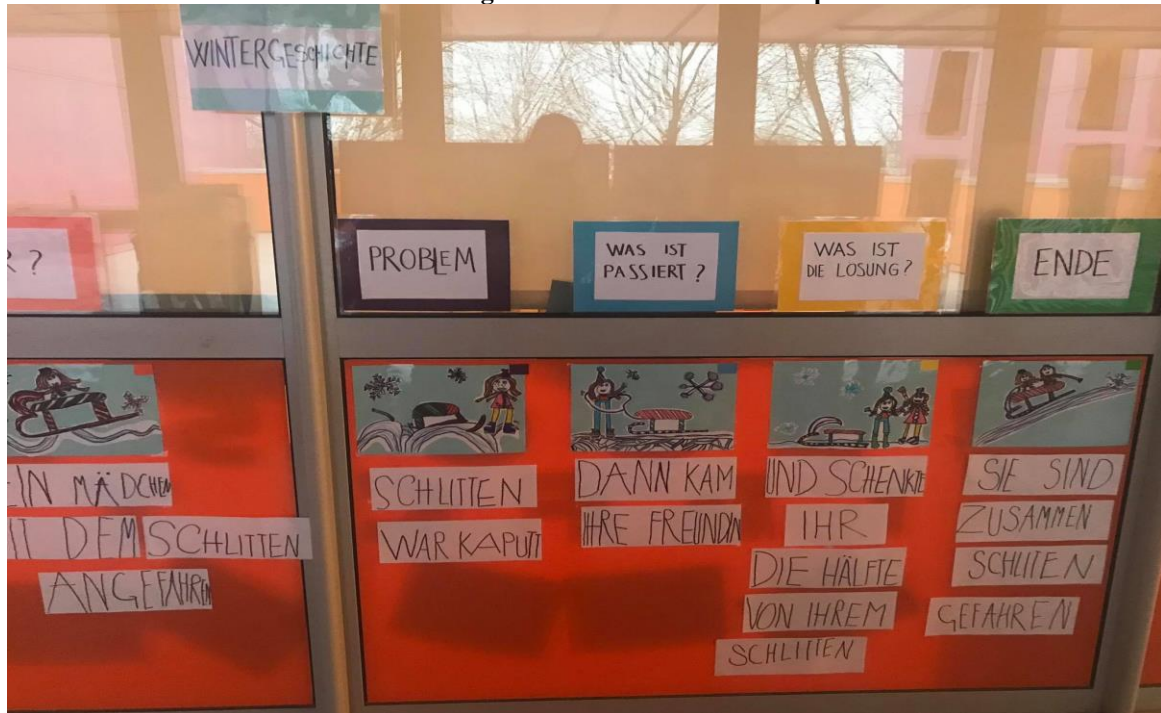 WINTERGESCHICHTE
R?
PROBLEM
WAS IST
PASSIERT?
WAS IST
DIE LÖSUNG?
ENDE
EIN MÄDCHEN
IT DEM SCHLITTEN
ANGEFAHREN
SCHLITTEN
WAR KAPUTT
DANN KAM
IHRE FREUNDIN
UND SCHENKTE
IHR
DIE HÄLFTE
VON IHREM
SCHLITTEN
SIE SIND
ZUSAMMEN
SCHLITEN
GEFAHREN